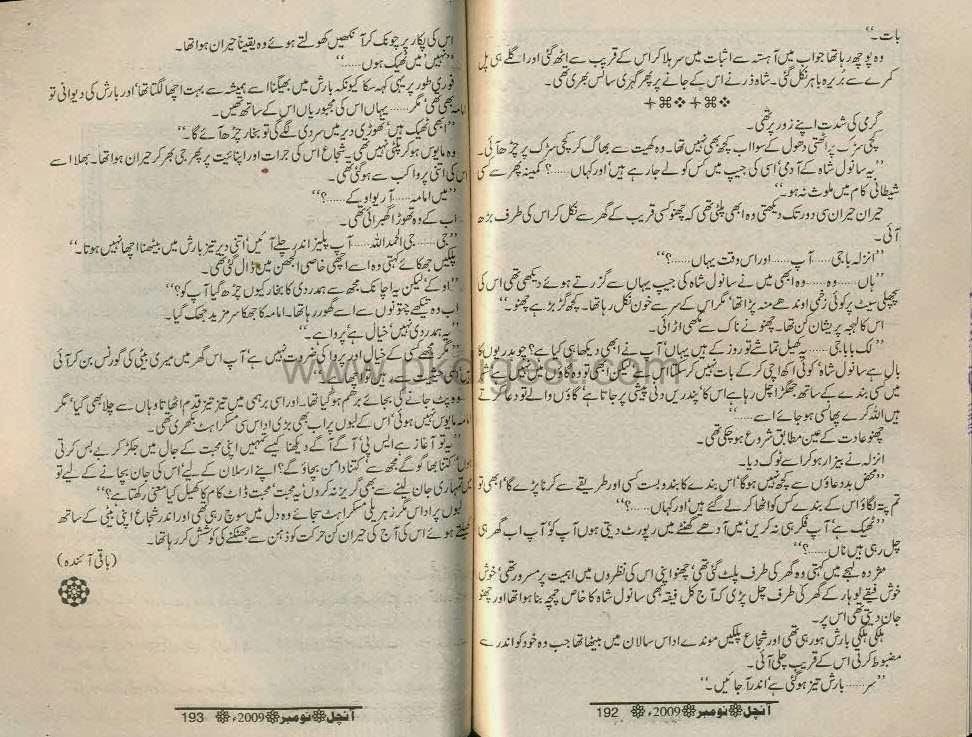 بات۔‘‘
وہ پوچھ رہا تھا جواب میں آہستہ سے اثبات میں سر ہلا کر اس کے قریب سے اٹھ گئی اور اگلے ہی پل
کمرے سے بُریرہ باہر نکل گئی۔ شاہ ذر نے اس کے جانے پر پھر گہری سانس بھری تھی۔
گرمی کی شدت اپنے زور پر تھی۔
کچی سڑک پر اٹھتی دھول کے سوا اب کچھ بھی نہیں تھا۔ وہ کھیت سے بھاگ کر کچی سڑک پر چڑھ آئی۔
’’یہ سانول شاہ کے آدمی اسی کی جیپ میں کس کو لے جا رہے ہیں‘ اور کہاں......؟ کمینہ پھر سے کسی
شیطانی کام میں ملوث نہ ہو۔‘‘
حیران حیران سی دور تک دیکھتی وہ ابھی پلٹی تھی کہ چھنو کسی قریب کے گھر سے نکل کر اس کی طرف بڑھ
آئی۔
’’انزلہ باجی...... آپ...... اور اس وقت یہاں......؟‘‘
’’ہاں...... وہ...... وہ ابھی میں نے سانول شاہ کی جیپ یہاں سے گزرتے ہوئے دیکھی تھی اس کی
پچھلی سیٹ پر کوئی زخمی اوندھے منہ پڑا تھا‘ مگر اس کے سر سے خون نکل رہا تھا۔ کچھ گڑبڑ ہے چھنو۔‘‘
اس کا لہجہ پریشان کن تھا۔ چھنو نے ناک سے مکھی اڑائی۔
’’لک بابا جی...... یہ کھیل تماشے تو روز کے ہیں یہاں‘ آپ نے ابھی دیکھا ہی کیا ہے؟ چوہدریوں کا
بال ہے سانول شاہ‘ کوئی اکھ اچی کر کے بات نہیں کر سکتا اس لیکن ابھی تو وہ گاؤں میں
میں کسی بندے کے ساتھ جھگڑا چل رہا ہے اس کا‘ پندریں دنی پیشی پر جاتا ہے‘ گاؤں والے تو دعا کرتے
ہیں اللہ کرے پھاسی ہو جائے اسے......‘‘
چھنو عادت کے عین مطابق شروع ہو چکی تھی۔
انزلہ نے بیزار ہو کر اسے ٹوک دیا۔
’’محض بددعاؤں سے کچھ نہیں ہوگا‘ اس بندے کا بندوبست کسی اور طریقے سے کرنا پڑے گا‘ ابھی تو
تم پتہ لگاؤ اس کے بندے کس کو اٹھا کر لے گئے ہیں‘ اور کہاں......؟‘‘
’’ٹھیک ہے‘ آپ فکر ہی نہ کریں‘ میں آدھے گھنٹے میں رپورٹ دیتی ہوں آپ کو‘ آپ اب گھر ہی
چل رہی ہیں ناں......؟‘‘
مژدہ لہجے میں کہتی وہ گھر کی طرف پلٹ گئی تھی‘ چھنو اپنی اس کی نظروں میں اہمیت پر مسرور تھی‘ خوش
خوش فیقے لوہار کے گھر کی طرف چل پڑی کہ آج کل فیقہ بھی سانول شاہ کا خاص چمچہ بنا ہوا تھا اور چھنو
جان دیتی تھی اس پر۔
ہلکی ہلکی بارش ہو رہی تھی اور شجاع پلکیں موندے اداس سا لان میں بیٹھا تھا جب وہ خود کو اندر سے
مضبوط کرتی اس کے قریب چلی آئی۔
’’سر...... بارش تیز ہو گئی ہے‘ اندر آ جائیں۔‘‘
آنچل نومبر 2009ء 192
اس کی پکار پر چونک کر آنکھیں کھولتے ہوئے وہ یقیناً حیران ہوا تھا۔
’’نہیں‘ میں ٹھیک ہوں......‘‘
فوری طور پر یہی کہہ سکا کیونکہ بارش میں بھیگنا اسے ہمیشہ سے بہت اچھا لگتا تھا‘ اور بارش کی دیوانی تو
امامہ بھی تھی‘ مگر...... یہاں اس کی مجبوریاں اس کے ساتھ تھیں۔
’’ابھی ٹھیک ہیں‘ تھوڑی دیر میں سردی لگے گی تو بخار چڑھ آئے گا۔‘‘
وہ مایوس ہو کر پلٹی نہیں تھی یہ شجاع اس کی جرات اور اپنائیت پر پھر جی بھر کر حیران ہوا تھا۔ بھلا اسے
اس کی اتنی پروا کب سے ہو گئی تھی۔
’’میں امامہ...... آر یو اوکے......؟‘‘
اب کے وہ تھوڑا گھبرائی تھی۔
’’جی...... جی الحمد اللہ...... آپ پلیز اندر چلے آئیں‘ اتنی دیر تیز بارش میں بیٹھنا اچھا نہیں ہوتا۔‘‘
پلکیں جھکائے کہتی وہ اسے اچھی خاصی الجھن میں ڈال گئی تھی۔
’’اوکے‘ لیکن یہ اچانک مجھ سے ہمدردی کا بخار کیوں چڑھ گیا آپ کو؟‘‘
اب وہ تیکھے چتونوں سے اسے گھور رہا تھا۔ امامہ کا جھکا سر مزید جھک گیا۔
’’یہ ہمدردی نہیں‘ خیال ہے‘ پروا ہے۔‘‘
’’مگر مجھے کسی کے خیال اور پروا کی ضرورت نہیں ہے‘ آپ اس گھر میں میری بیٹی کی گورنس بن کر آئی
سے رہیں تو اچھا ہے۔‘‘
وہ پٹ جانے کی بجائے برہم ہو گیا تھا۔ اور اسی برہمی میں تیز تیز قدم اٹھاتا وہاں سے چلا بھی گیا‘ مگر
امامہ مایوس نہیں ہوئی‘ اس کے لبوں پر اب بھی بڑی اداس سی مسکراہٹ بکھری تھی۔
’’یہ تو آغاز ہے ایس پی‘ آگے آگے دیکھنا کیسے تمہیں اپنی محبت کے جال میں جکڑ کر بے بس کرتی
ہوں‘ کتنا بھاگو گے‘ مجھ سے‘ کتنا دامن بچاؤ گے؟ اپنے ارسلان کے لیے‘ اس کی جان بچانے کے لیے تو
میں تمہاری جان لینے سے بھی گریز نہ کروں‘ یہ محبت‘ محبت ڈاٹ کام کا کھیل کیا معنی رکھتا ہے؟‘‘
لبوں پر اداس مگر زہریلی مسکراہٹ سجائے وہ دل میں سوچ رہی تھی اور اندر شجاع اپنی بیٹی کے ساتھ
کھیلتے ہوئے اس کی آج کی حیران کن حرکت کو ذہن سے جھٹکنے کی کوشش کر رہا تھا۔
(باقی آئندہ)
آنچل نومبر 2009ء 193